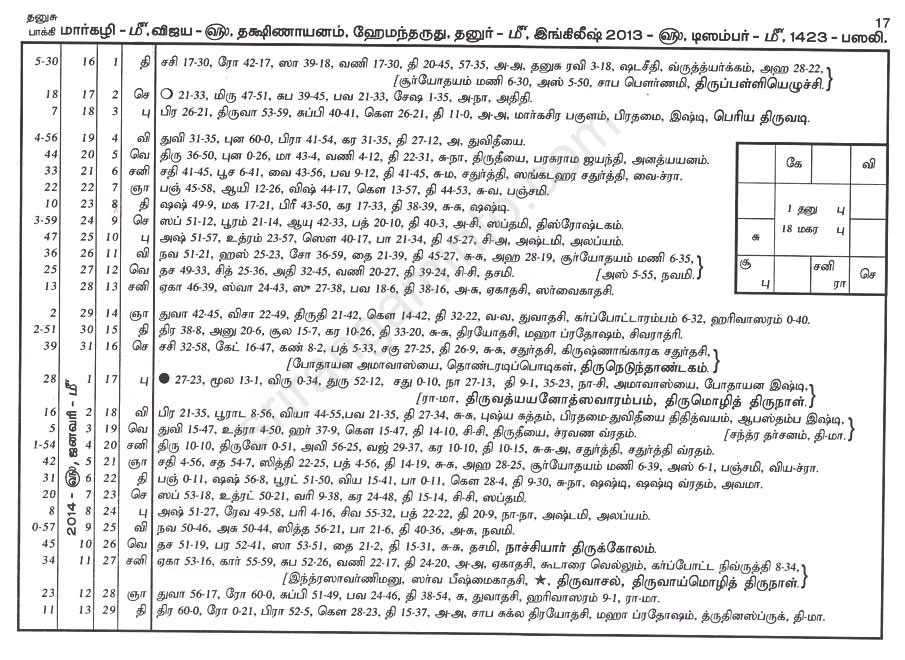 தனுசு
17
பாக்கி மார்கழி - மீ, விஜய - ௵, தக்ஷிணாயனம், ஹேமந்தருது, தனுர் - மீ, இங்கிலீஷ் 2013 - ௵, டிஸம்பர் - மீ, 1423 - பஸலி.
5-30 16 1 தி சசி 17-30, ரோ 42-17, ஸா 39-18, வணி 17-30, தி 20-45, 57-35, அ-அ, தனுசு ரவி 3-18, ஷடசீதி, வ்ருத்த்யர்க்கம், அஹ 28-22,
[சூர்யோதயம் மணி 6-30, அஸ் 5-50, சாப பௌர்ணமி, திருப்பள்ளியெழுச்சி.
18 17 2 செ 21-33, மிரு 47-51, சுப 39-45, பவ 21-33, சேஷ 1-35, அ-நா, அதிதி.
7 18 3 பு பிர 26-21, திருவா 53-59, சுப்பி 40-41, கௌ 26-21, தி 11-0, அ-அ, மார்கசிர பகுளம், பிரதமை, இஷ்டி, பெரிய திருவடி.
4-56 19 4 வி துவி 31-35, புன 60-0, பிரா 41-54, கர 31-35, தி 27-12, அ, துவிதீயை.
44 20 5 வெ திரு 36-50, புன 0-26, மா 43-4, வணி 4-12, தி 22-31, சு-நா, திருதீயை, பரசுராம ஜயந்தி, அனத்யயனம்.
33 21 6 சனி சதி 41-45, பூச 6-41, வை 43-56, பவ 9-12, தி 41-45, சு-ம, சதுர்த்தி, ஸங்கடஹர சதுர்த்தி, வை-ச்ரா.
22 22 7 ஞா பஞ் 45-58, ஆயி 12-26, விஷ் 44-17, கௌ 13-57, தி 44-53, சு-வ, பஞ்சமி.
10 23 8 தி ஷஷ் 49-9, மக 17-21, பிரீ 43-50, கர 17-33, தி 38-39, சு-சு, ஷஷ்டி.
3-59 24 9 செ ஸப் 51-12, பூரம் 21-14, ஆயு 42-33, பத் 20-10, தி 40-3, அ-சி, ஸப்தமி, திஸ்ரோஷ்டகம்.
47 25 10 பு அஷ் 51-57, உத்ரம் 23-57, ஸௌ 40-17, பா 21-34, தி 45-27, சி-அ, அஷ்டமி, அலப்யம்.
36 26 11 வி நவ 51-21, ஹஸ் 25-23, சோ 36-59, தை 21-39, தி 45-27, சு-சு, அஹ 28-19, சூர்யோதயம் மணி 6-35,
25 27 12 வெ தச 49-33, சித் 25-36, அதி 32-45, வணி 20-27, தி 39-24, சி-சி, தசமி. [அஸ் 5-55, நவமி.
13 28 13 சனி ஏகா 46-39, ஸ்வா 24-43, ஸு 27-38, பவ 18-6, தி 38-16, அ-சு, ஏகாதசி, ஸர்வைகாதசி.
கே வி
1 தனு பு
18 மகர பு
சு
சூ பு சனி ரா செ
2 29 14 ஞா துவா 42-45, விசா 22-49, திருதி 21-42, கௌ 14-42, தி 32-22, வ-வ, துவாதசி, கர்ப்போட்டாரம்பம் 6-32, ஹரிவாஸரம் 0-40.
2-51 30 15 தி திர 38-8, அனு 20-6, சூல 15-7, கர 10-26, தி 33-20, சு-சு, திரயோதசி, மஹா ப்ரதோஷம், சிவராத்ரி.
39 31 16 செ சசி 32-58, கேட் 16-47, கண் 8-2, பத் 5-33, சகு 27-25, தி 26-9, சு-சு, சதுர்தசி, கிருஷ்ணாங்காரக சதுர்தசி,
[போதாயன அமாவாஸ்யை, தொண்டரடிப்பொடிகள், திருநெடுந்தாண்டகம்.
2014 - ௵, ஜனவரி - மீ
28 1 17 பு 27-23, மூல 13-1, விரு 0-34, துரு 52-12, சது 0-10, நா 27-13, தி 9-1, 35-23, நா-சி, அமாவாஸ்யை, போதாயன இஷ்டி,
[ரா-மா, திருவத்யயனோத்ஸவாரம்பம், திருமொழித் திருநாள்.
16 2 18 வி பிர 21-35, பூராட 8-56, வியா 44-55, பவ 21-35, தி 27-34, சு-சு, புஷ்ய சுத்தம், பிரதமை-துவிதீயை திதித்வயம், ஆபஸ்தம்ப இஷ்டி,
5 3 19 வெ துவி 15-47, உத்ரா 4-50, ஹர் 37-9, கௌ 15-47, தி 14-10, சி-சி, திருதீயை, ச்ரவண வ்ரதம். [சந்த்ர தர்சனம், தி-மா.
1-54 4 20 சனி திரு 10-10, திருவோ 0-51, அவி 56-25, வஜ் 29-37, கர 10-10, தி 10-15, சு-சு-அ, சதுர்த்தி, சதுர்த்தி வ்ரதம்.
42 5 21 ஞா சதி 4-56, சத 54-7, ஸித்தி 22-25, பத் 4-56, தி 14-19, சு-சு, அஹ 28-25, சூர்யோதயம் மணி 6-39, அஸ் 6-1, பஞ்சமி, விய-ச்ரா.
31 6 22 தி பஞ் 0-11, ஷஷ் 56-8, பூரட் 51-50, விய 15-41, பா 0-11, கௌ 28-4, தி 9-30, சு-நா, ஷஷ்டி, ஷஷ்டி வ்ரதம், அவமா.
20 7 23 செ ஸப் 53-18, உத்ரட் 50-21, வரி 9-38, கர 24-48, தி 15-14, சி-சி, ஸப்தமி.
8 8 24 பு அஷ் 51-27, ரேவ 49-58, பரி 4-16, சிவ 55-32, பத் 22-22, தி 20-9, நா-நா, அஷ்டமி, அலப்யம்.
0-57 9 25 வி நவ 50-46, அசு 50-44, ஸித்த 56-21, பா 21-6, தி 40-36, அ-சு, நவமி.
45 10 26 வெ தச 51-19, பர 52-41, ஸா 53-51, தை 21-2, தி 15-31, சு-சு, தசமி, நாச்சியார் திருக்கோலம்.
34 11 27 சனி ஏகா 53-16, கார் 55-59, சுப 52-26, வணி 22-17, தி 24-20, அ-அ, ஏகாதசி, கூடாரை வெல்லும், கர்ப்போட்ட நிவ்ருத்தி 8-34,
[இந்த்ரஸாவர்ணிமனு, ஸர்வ பீஷ்மைகாதசி, ★, திருவாசல், திருவாய்மொழித் திருநாள்.
23 12 28 ஞா துவா 56-17, ரோ 60-0, சுப்பி 51-49, பவ 24-46, தி 38-54, சு, துவாதசி, ஹரிவாஸரம் 9-1, ரா-மா.
11 13 29 தி திர 60-0, ரோ 0-21, பிர 52-5, கௌ 28-23, தி 15-37, அ-அ, சாப சுக்ல திரயோதசி, மஹா ப்ரதோஷம், த்ருதினஸ்ப்ருக், தி-மா.
srirangaminfo.com